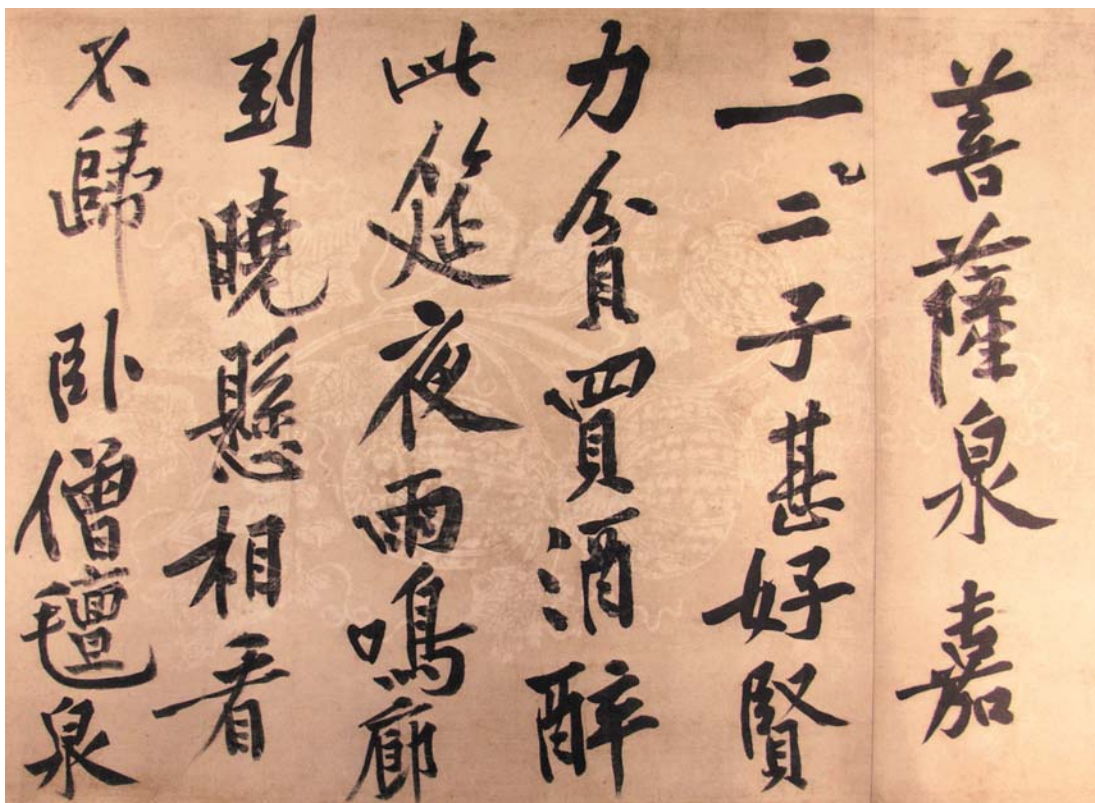 菩薩泉嘉
三二子甚好賢
力貧買酒醉
此筵夜雨鳴廊
到曉懸相看
不歸卧僧氈泉